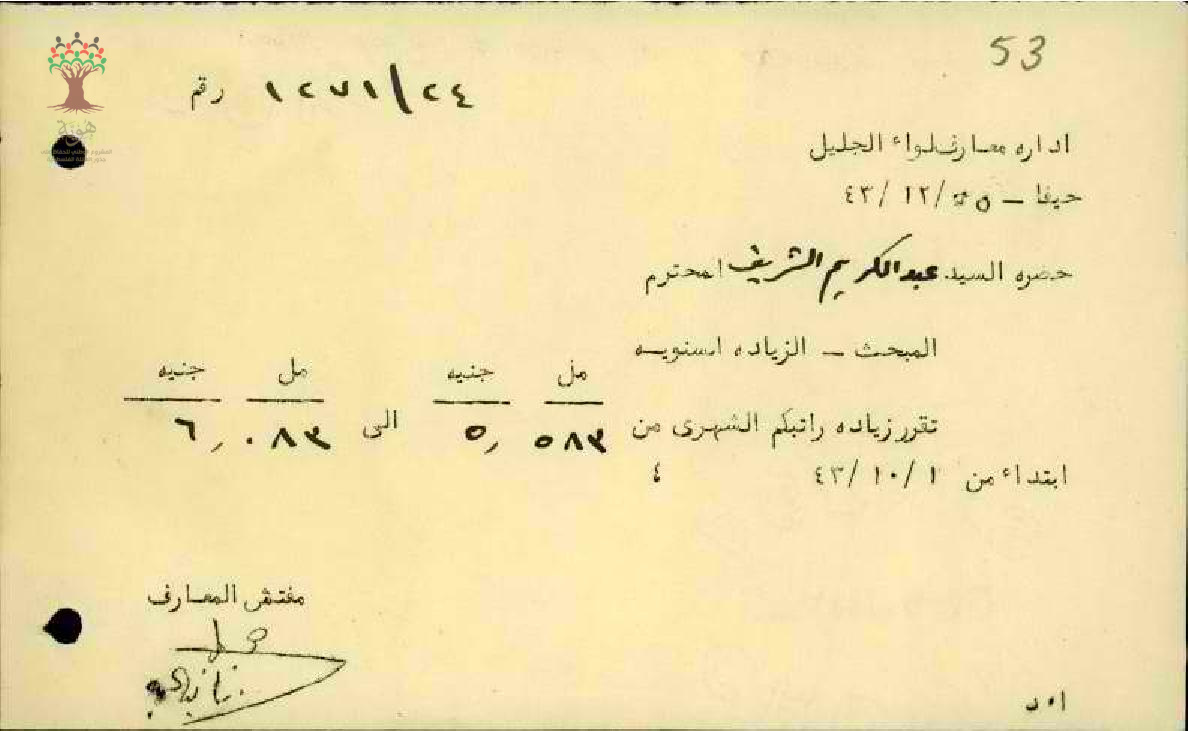 53
رقم ١٢٧١/٢٤
هوية
اداره معارف لواء الجليل
حيفا – /١٢/ ٤٣
حضره السيد عبد الكريم الشريف المحترم
المبحث – الزياده اسنويه
مل جنيه مل جنيه
تقرر زياده راتبكم الشهرى من ٥٨٣ ,٥ الى ٠٨٣ ,٦
ابتداء من ١ /١٠/ ٤٣ ٤
مفتش المعارف